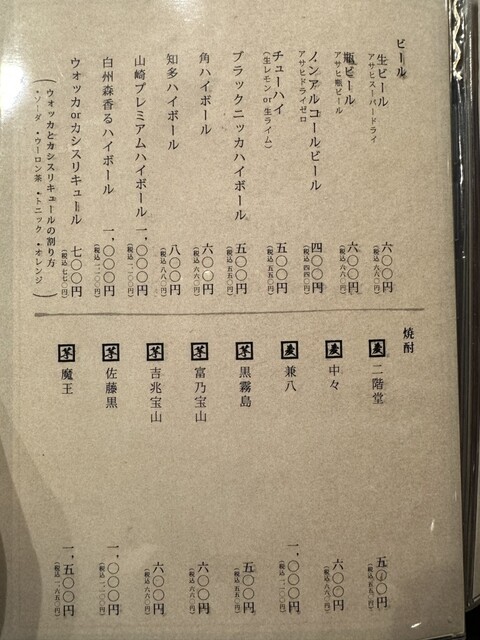 ビール
生ビール
アサヒスーパードライ
六〇〇円
(税込 六六〇円)
瓶ビール
アサヒ瓶ビール
六〇〇円
(税込 六六〇円)
ノンアルコールビール
アサヒドライゼロ
四〇〇円
(税込 四四〇円)
チューハイ
(生レモン or 生ライム)
五〇〇円
(税込 五五〇円)
ブラックニッカハイボール
五〇〇円
(税込 五五〇円)
角ハイボール
六〇〇円
(税込 六六〇円)
知多ハイボール
八〇〇円
(税込 八八〇円)
山崎プレミアムハイボール
一、〇〇〇円
(税込 一、一〇〇円)
白州森香るハイボール
一、〇〇〇円
(税込 一、一〇〇円)
ウォッカorカシスリキュール
七〇〇円
(税込 七七〇円)
ウォッカとカシスリキュールの割り方
・ソーダ ・ウーロン茶 ・トニック ・オレンジ
焼酎
麦 二階堂
五〇〇円
(税込 五五〇円)
麦 中々
六〇〇円
(税込 六六〇円)
麦 兼八
一、〇〇〇円
(税込 一、一〇〇円)
芋 黒霧島
五〇〇円
(税込 五五〇円)
芋 富乃宝山
六〇〇円
(税込 六六〇円)
芋 吉兆宝山
六〇〇円
(税込 六六〇円)
芋 佐藤黒
一、〇〇〇円
(税込 一、一〇〇円)
芋 魔王
一、五〇〇円
(税込 一、六五〇円)